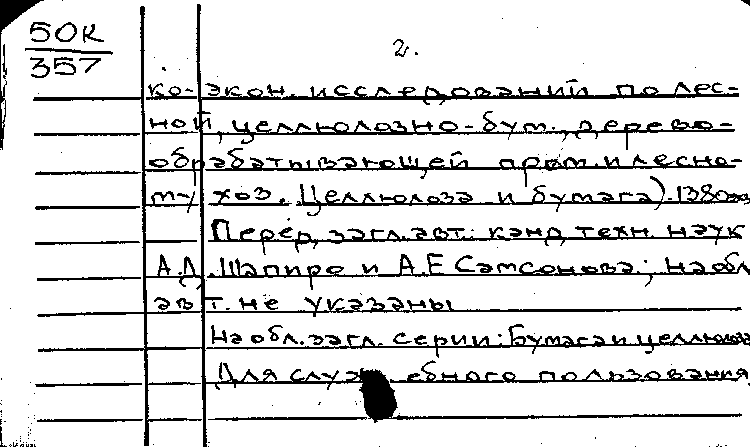 50К
357
2.
ко-экон. исследований по лес-
ной, целлюлозно-бум., дерево-
обрабатывающей пром. и лесно-
му хоз. Целлюлоза и бумага). 1380экз
Перед загл. авт.: канд. техн. наук
А.Д. Шапиро и А.Е Самсонова; на обл
авт. не указаны
На обл. загл. серии: Бумага и целлюлоза
Для служебного пользования